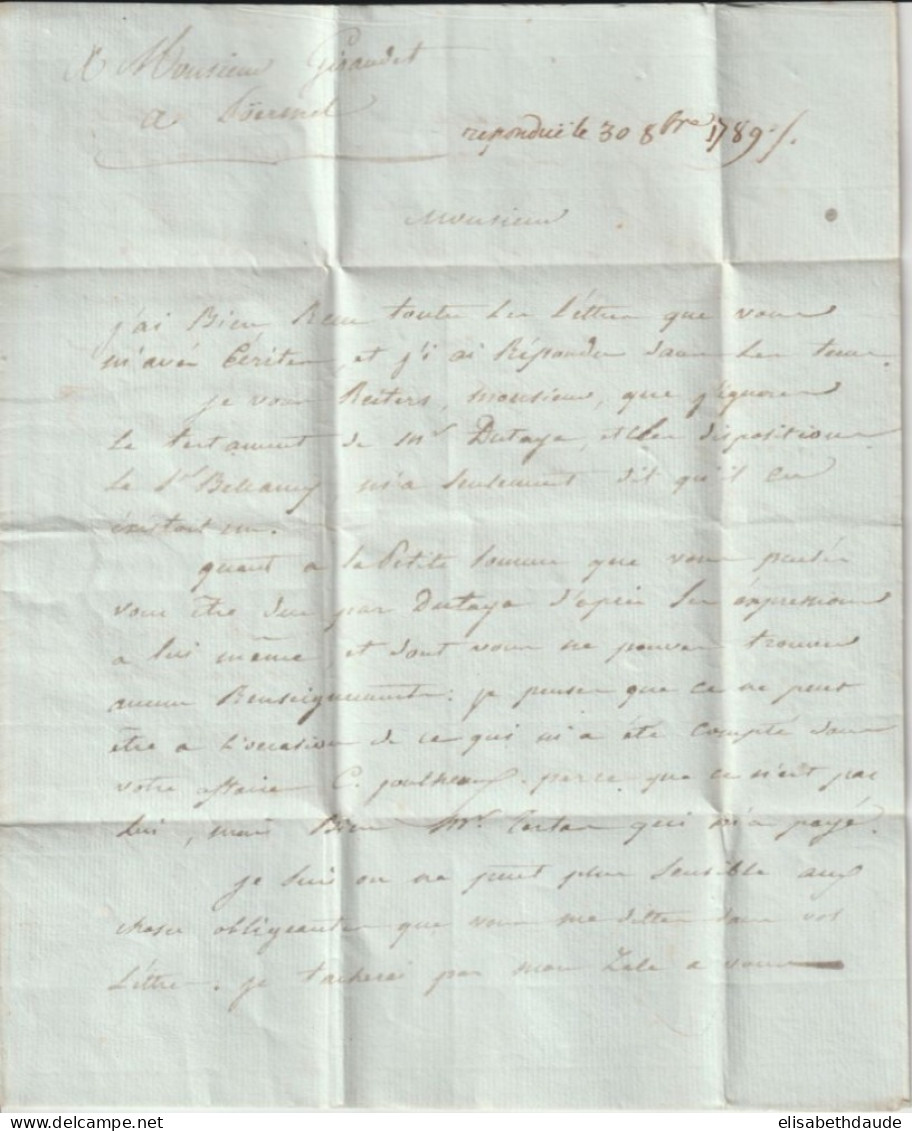 A Monsieur Giraudet
a
repondüe le 30 8bre 1789 /.
Monsieur
j'ai Bien Recu toutes Les Lettres que vous
m'avés Ecrites, et j'i ai Répondu dans Les tems.
je vous Reiters, monsieur, que j'ignore
Le testament de Mr Dutaya, et Les dispositions
Le Sr Bellamy m'a seulement dit qu'il en
éxistoit un.
quant a la Petite somme que vous pensés
vous être due par Dutaya d'après Les éxpressions
a lui même, et dont vous ne pouvés trouver
aucun Renseignements. je pense que ce ne peut
être a L'occasion de ce qui m'a été compté dans
votre affaire C. parce que ce n'est pas
Lui, mais Bien Mr. qui m'a payé.
je suis on ne peut plus sensible aux
choses obligeantes que vous me dittes dans vos
Lettres. je tacherai par mon Zele a vous
elisabethdaude